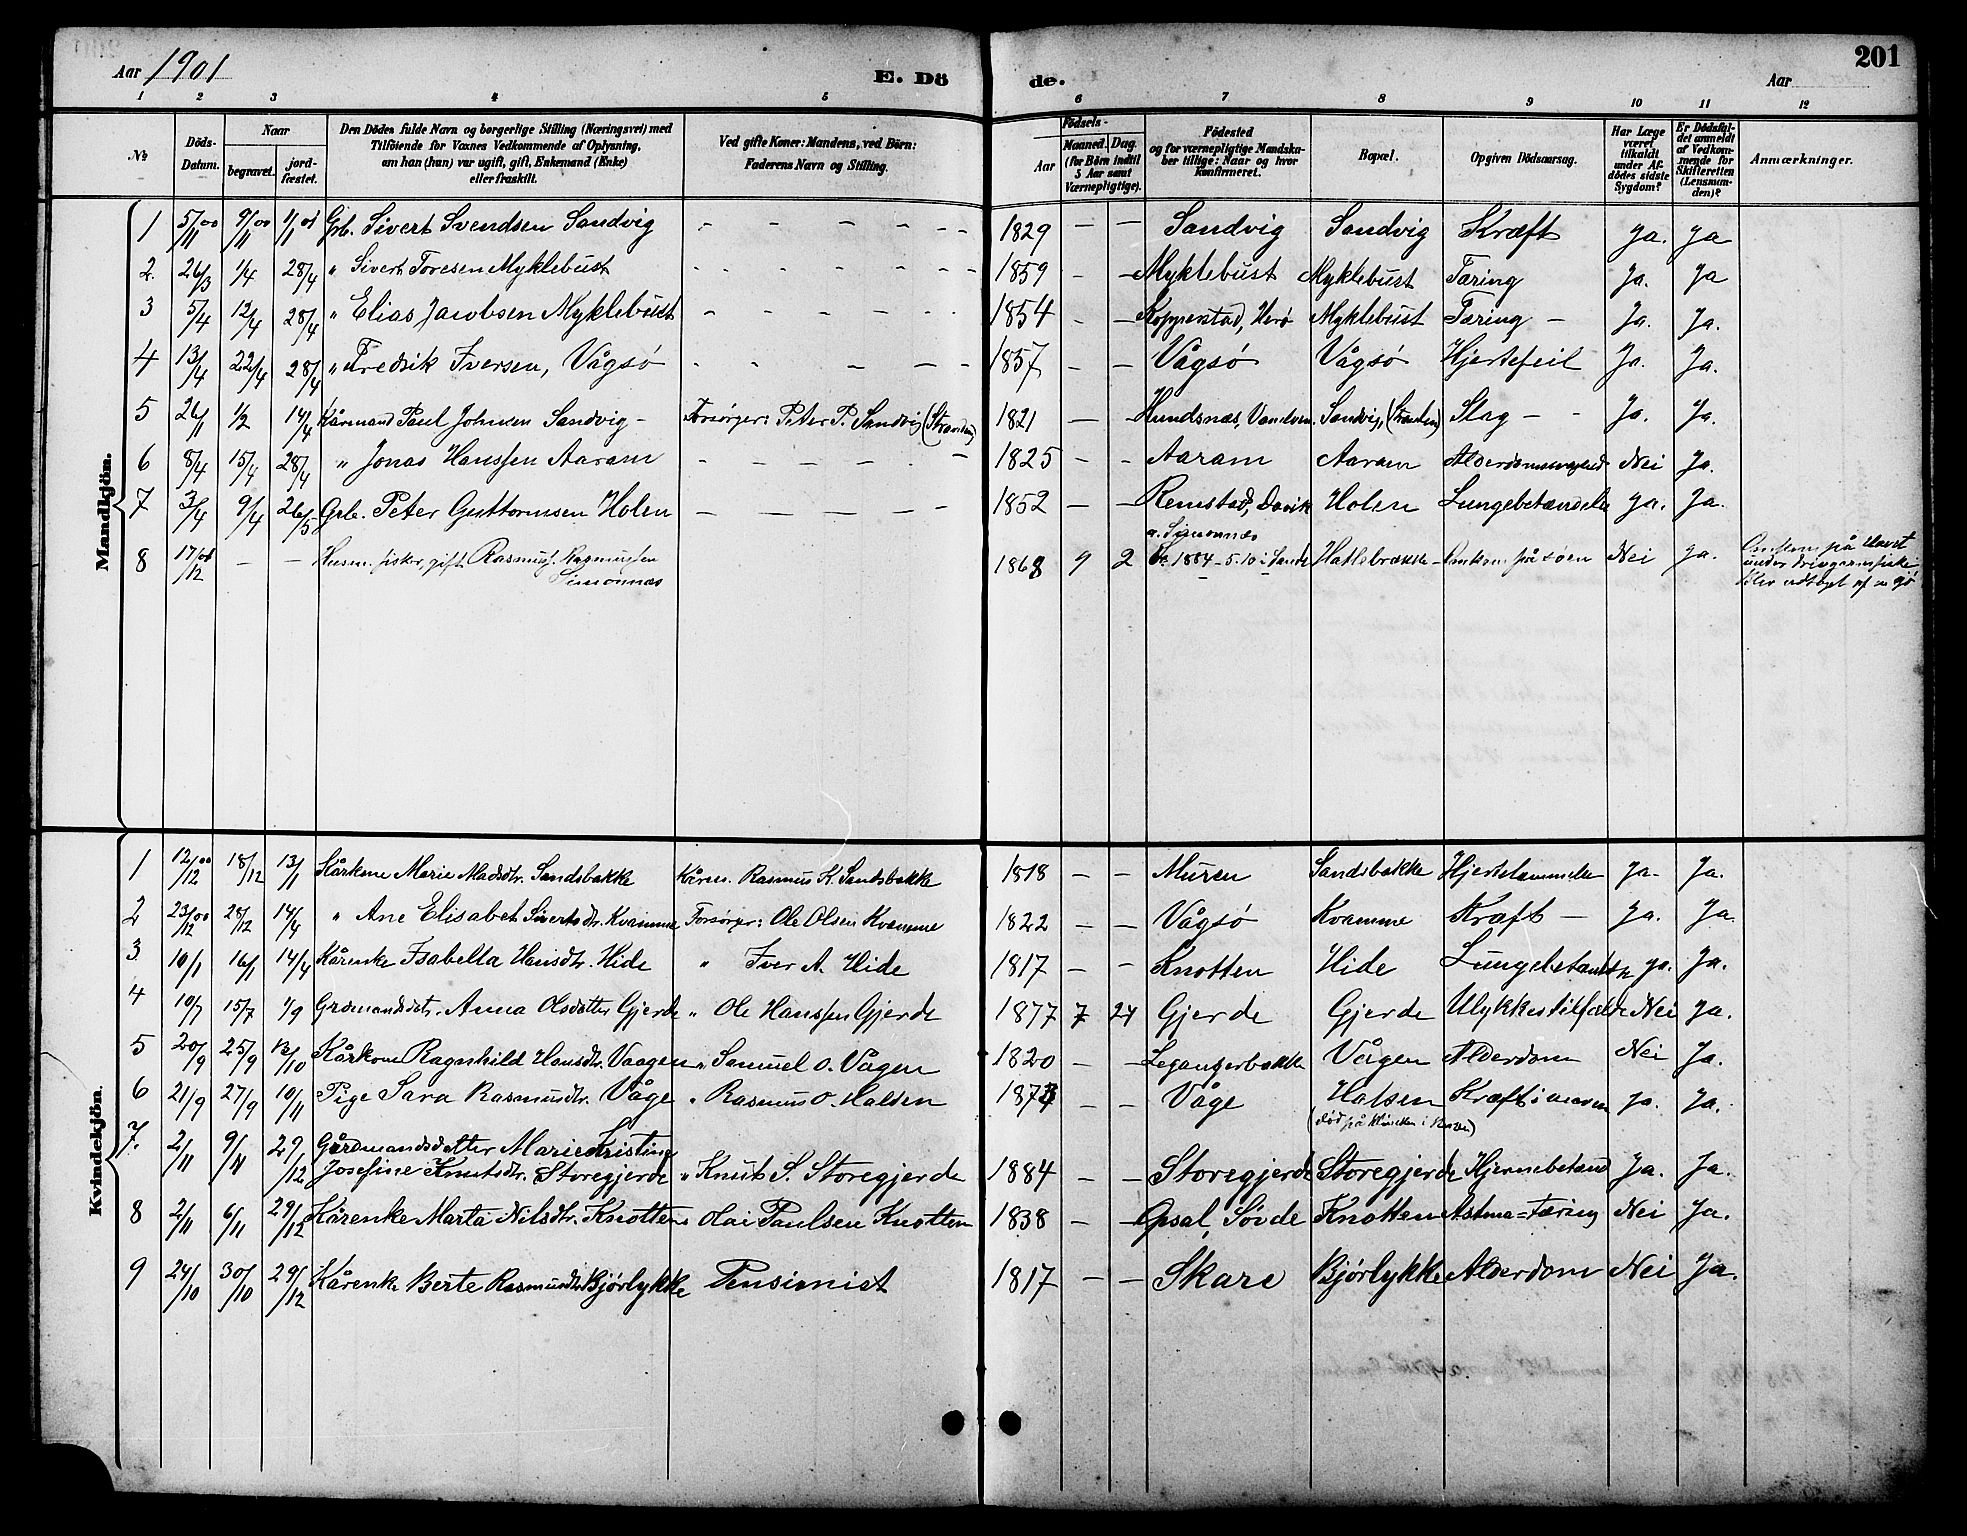 Aar 1901 E. Dö de. Aar 201
1 2 3 4 5 6 7 8 9 10 11 12
№ Döds-Datum. Naar begravet. jordfæstet. Den Dödes fulde Navn og borgerlige Stilling (Næringsvei) med Tilföiende for Voxnes Vedkommende af Oplysning, om han (hun) var ugift, gift, Enkemand (Enke) eller fraskilt. Ved gifte Koner: Mandens, ved Börn: Faderens Navn og Stilling. Födsels- Aar Maaned. Dag. (for Börn indtil 5 Aar samt Værnepligtige). Födested og for værnepligtige Mandskaber tillige: Naar og hvor konfirmeret. Bopæl. Opgiven Dödsaarsag. Har Læge været tilkaldt under Afdödes sidste Sygdom? Er Dödsfaldet anmeldt af Vedkommende for Skifteretten (Lensmanden)? Anmærkninger.
Mandkjön.
1 5/11 00 9/11 00 1/1 01 Grb. Sivert Svendsen Sandvig - - - - - 1829 - - Sandvig Sandvig Kræft ja. ja
2. 26/3 1/4 28/4 " Sivert Toresen Myklebust - - - - - 1859 - - Myklebust Myklebust Tæring Ja. Ja
3 5/4 12/4 28/4 " Elias Jacobsen Myklebust - - - - - 1854 - - Kopperstad, Herö Myklebust Tæring - Ja. Ja.
4 13/4 22/4 28/4 " Fredrik Iversen, Vågsø - - - - - 1857 - - Vågsø Vågsø Hjertefeil Ja. Ja.
5 26/1 1/2 14/4 Kårmand Paul Johnsen Sandvig - Forsørger: Peter P. Sandvig (Stranden) 1821 - - Hundsnæs, Vandven. Sandvig, (Stranden) Slag - - Ja. Ja.
6 8/4 15/4 28/4 " Jonas Hanssen Aaram - - - - - 1825 - - Aaram Aaram Nei Ja.
7 3/4 9/4 26/5 Grb. Peter Guttormsen Holen - - - - - 1852 - - Remstad, Davik Holen Lungebetændelse ja. Ja.
8 17/12 - - Husm. fisker, gift Rasmus Rasmussen Simonnæs 1868 9 2 Simonnæs 1884 - 5.10 i Sande Hatlebrække - Omkom på søen Nei ja. Omkom på Havet under
Kvindekjön.
1 12/12 00 18/12 13/1 Kårkone Marie Madsdtr. Sandsbakke Kårm. Rasmus K. Sandsbakke 1818 - - Muren Sandsbakke Ja. Ja.
2 23/12 00 28/12 14/4 " Ane Elisabet Sivertsdtr. Kvamme Forsørger: Ole Olsen Kvamme 1822 - - Vågsø Kvamme Kræft - Ja. Ja.
3. 10/1 16/1 14/4 Kårenke Isabella Hansdtr. Hide " Iver A. Hide 1817 - - Knotten Hide ja. Ja.
4 10/7 15/7 1/9 Grdmandsdtr. Anna Olsdatter Gjerde " Ole Hanssen Gjerde 1877 7 24 Gjerde Gjerde Ulykkestilfælde Nei Ja.
5 20/9 25/9 13/10 Kårkone Ragnhild Hansdtr. Vaagen " Samuel O. Vågen 1820 - - Legangerbakke Vågen Alderdom Nei Ja.
6 21/9 27/9 10/11 Pige Sara Rasmusdtr. Våge " Rasmus O. Halsen - - Våge Halsen Kræft i maven ja. Ja.
(død på Kliniken i )
7. 2/11 9/11 29/12 Gårdmandsdatter Marie Kristine
Josefine Knutsdtr. Storegjerde " Knut S. Storegjerde 1884 - - Storegjerde Storegjerde Hjernebetænd Ja. Ja.
8 2/11 6/11 29/12 Kårenke Marta Nilsdtr. Knotten " Olai Paulsen Knotten 1838 - - Opsal, Søvde Knotten Astma = Tæring Nei Ja.
9 24/10 30/10 29/12 Kårenke Berte Rasmusdtr. Bjørlykke Pensionist 1817 - - Skare Bjørlykke Alderdom Nei Ja.